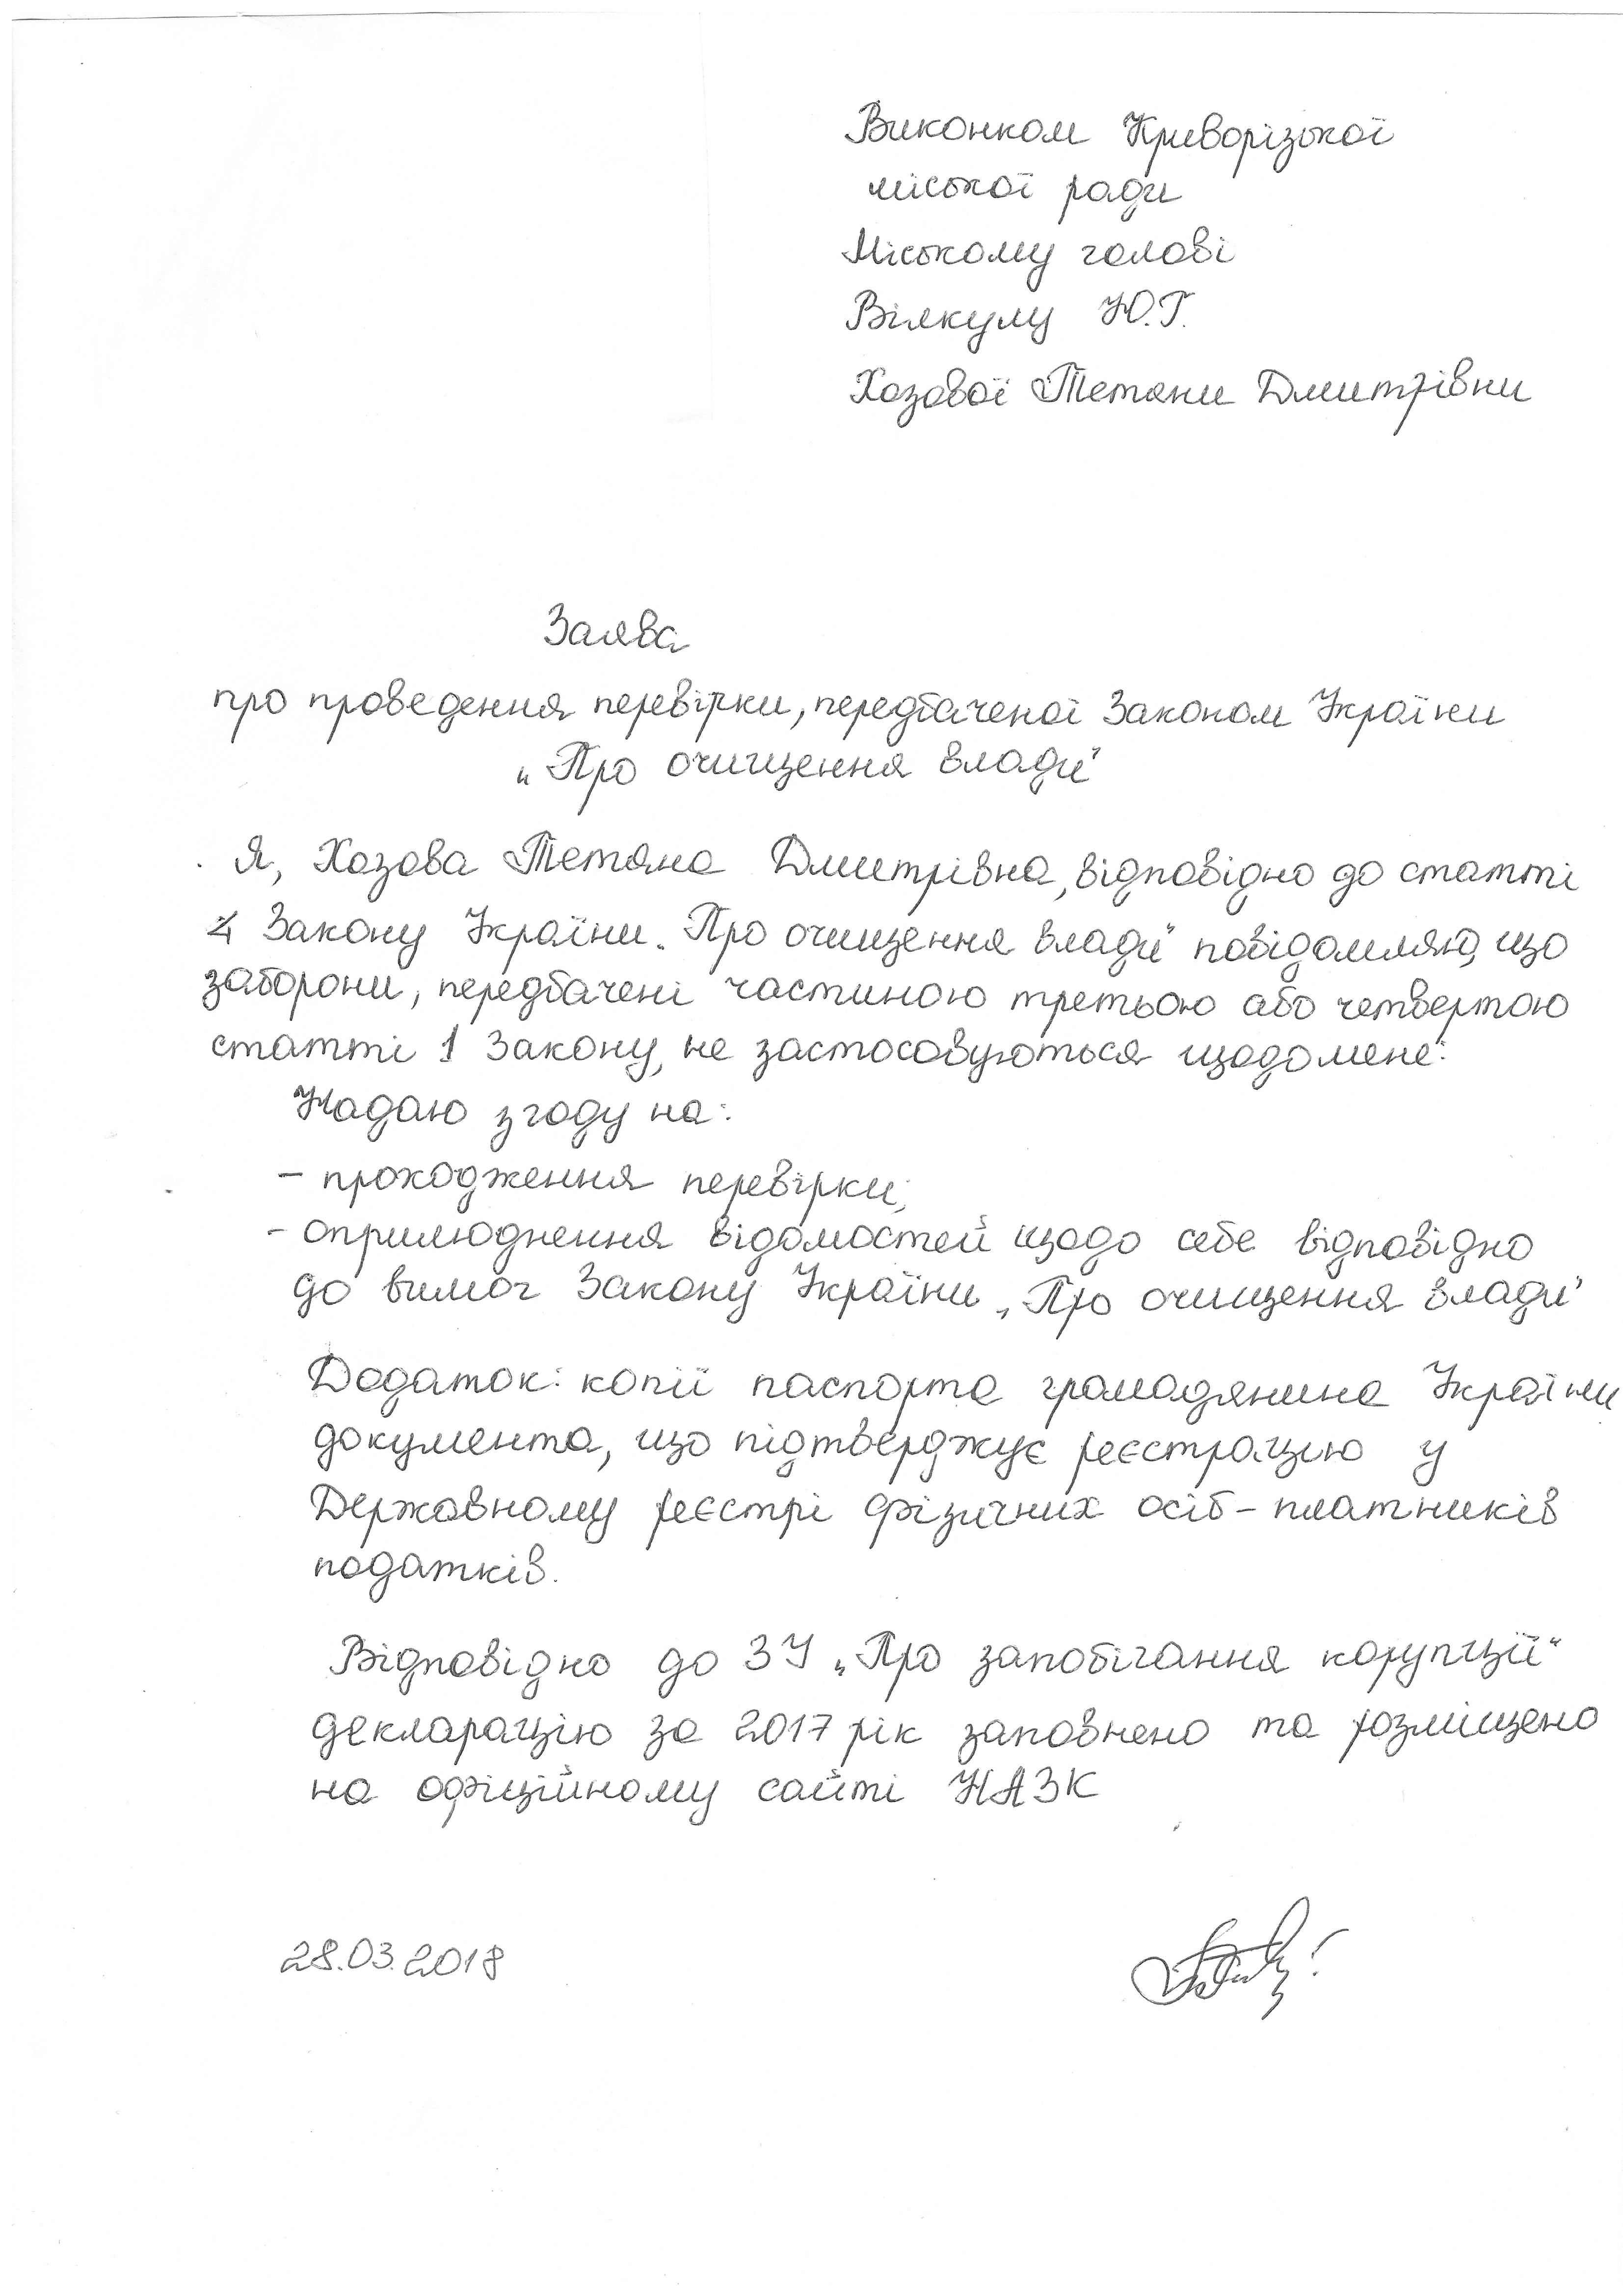 Виконком Криворізької
міської ради
Міському голові
Вілкулу Ю.Г.
Хазової Тетяни Дмитрівни
Заява
про проведення перевірки, передбаченої Законом України
„Про очищення влади"
Я, Хазова Тетяна Дмитрівна, відповідно до статті
4 Закону України „Про очищення влади" повідомляю, що
заборони, передбачені частиною третьою або четвертою
статті 1 Закону, не застосовуються щодо мене.
Надаю згоду на:
- проходження перевірки;
- оприлюднення відомостей щодо себе відповідно
до вимог Закону України „Про очищення влади"
Додаток: копії паспорта громадянина України
документа, що підтверджує реєстрацію у
Державному реєстрі фізичних осіб - платників
податків.
Відповідно до ЗУ „Про запобігання корупції"
декларацію за 2017 рік заповнено та розміщено
на офіційному сайті НАЗК
28.03.2018